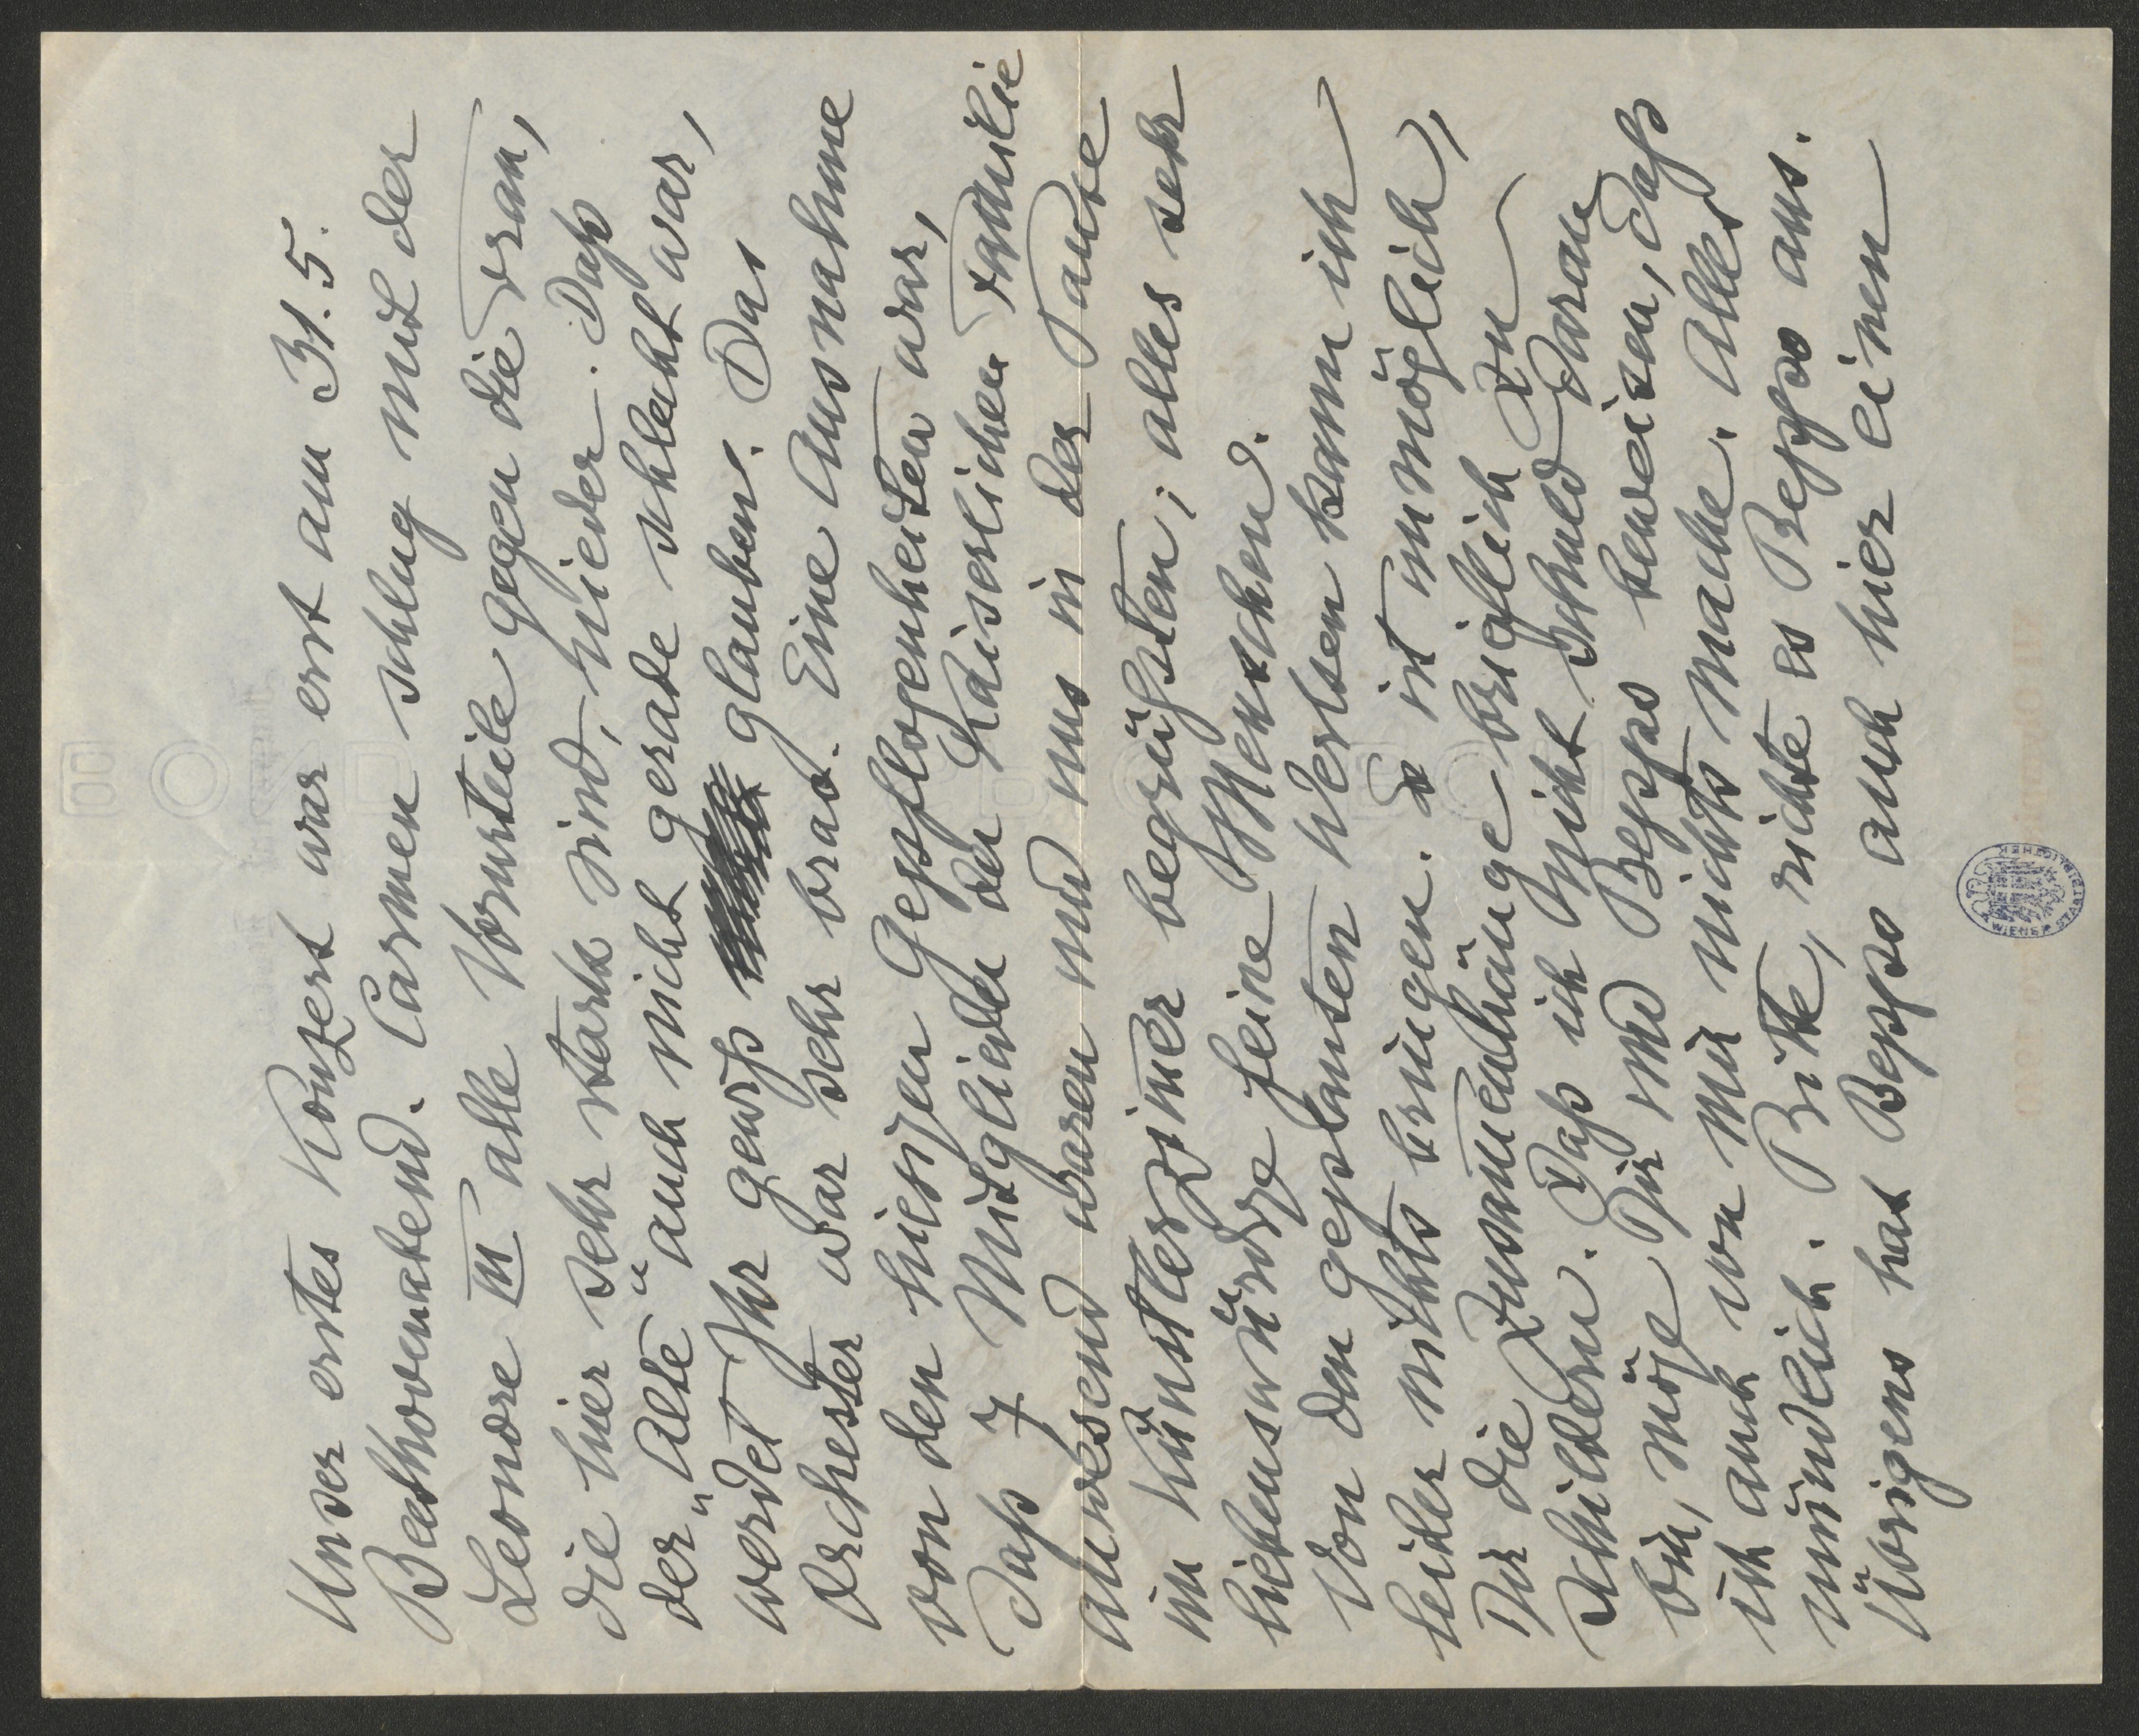 Unser erstes Konzert war erst am 31.5.
Beethovenabend. Carmen schlug mit der
Leonore III alle Vorurteile gegen die Frau,
die hier sehr stark sind, nieder. Daß
der „Alte“ auch nicht gerade schlecht war,
werdet Ihr gewiß glauben. Das
Orchester war sehr brav. Eine Ausnahme
von den hiesigen Gepflogenheiten war,
daß 7 Mitglieder der Kaiserlichen Familie
anwesend waren und uns in der Pause
im Künstlerzimmer begrüßten; alles sehr
liebenswürdige feine Menschen.
Von den geplanten Werken kann ich
leider nichts bringen. Es ist unmöglich,
Dir die Zusammenhänge brieflich zu
schildern. Daß ich nicht schuld daran
bin, möge Dir und Beppo beweisen, daß
ich auch von mir nichts mache. Alles
mündlich. Bitte, richte es Beppo aus.
Übrigens hat Beppo auch hier einen
WIENER STADTBIBLIOTHEK
BOND